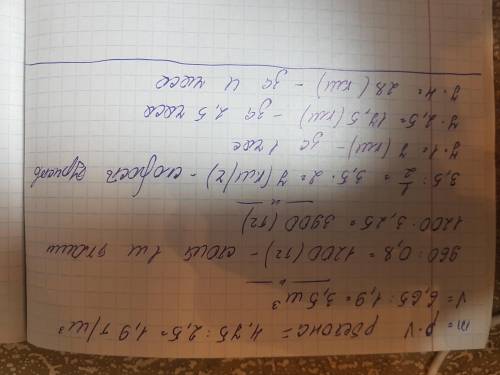 m = ρ·V ρбетона = 4,75 : 2,5 = 1,9 т/м³
V = 6,65 : 1,9 = 3,5 м³
— " —
960 : 0,8 = 1200 (тг) - стоит 1 м ткани
1200 · 3,25 = 3900 (тг)
— " —
3,5 : 1/2 = 3,5 · 2 = 7 (км/ч) - скорость
7 · 1 = 7 (км) - за 1 час
7 · 2,5 = 17,5 (км) - за 2,5 часа
7 · 4 = 28 (км) - за 4 часа